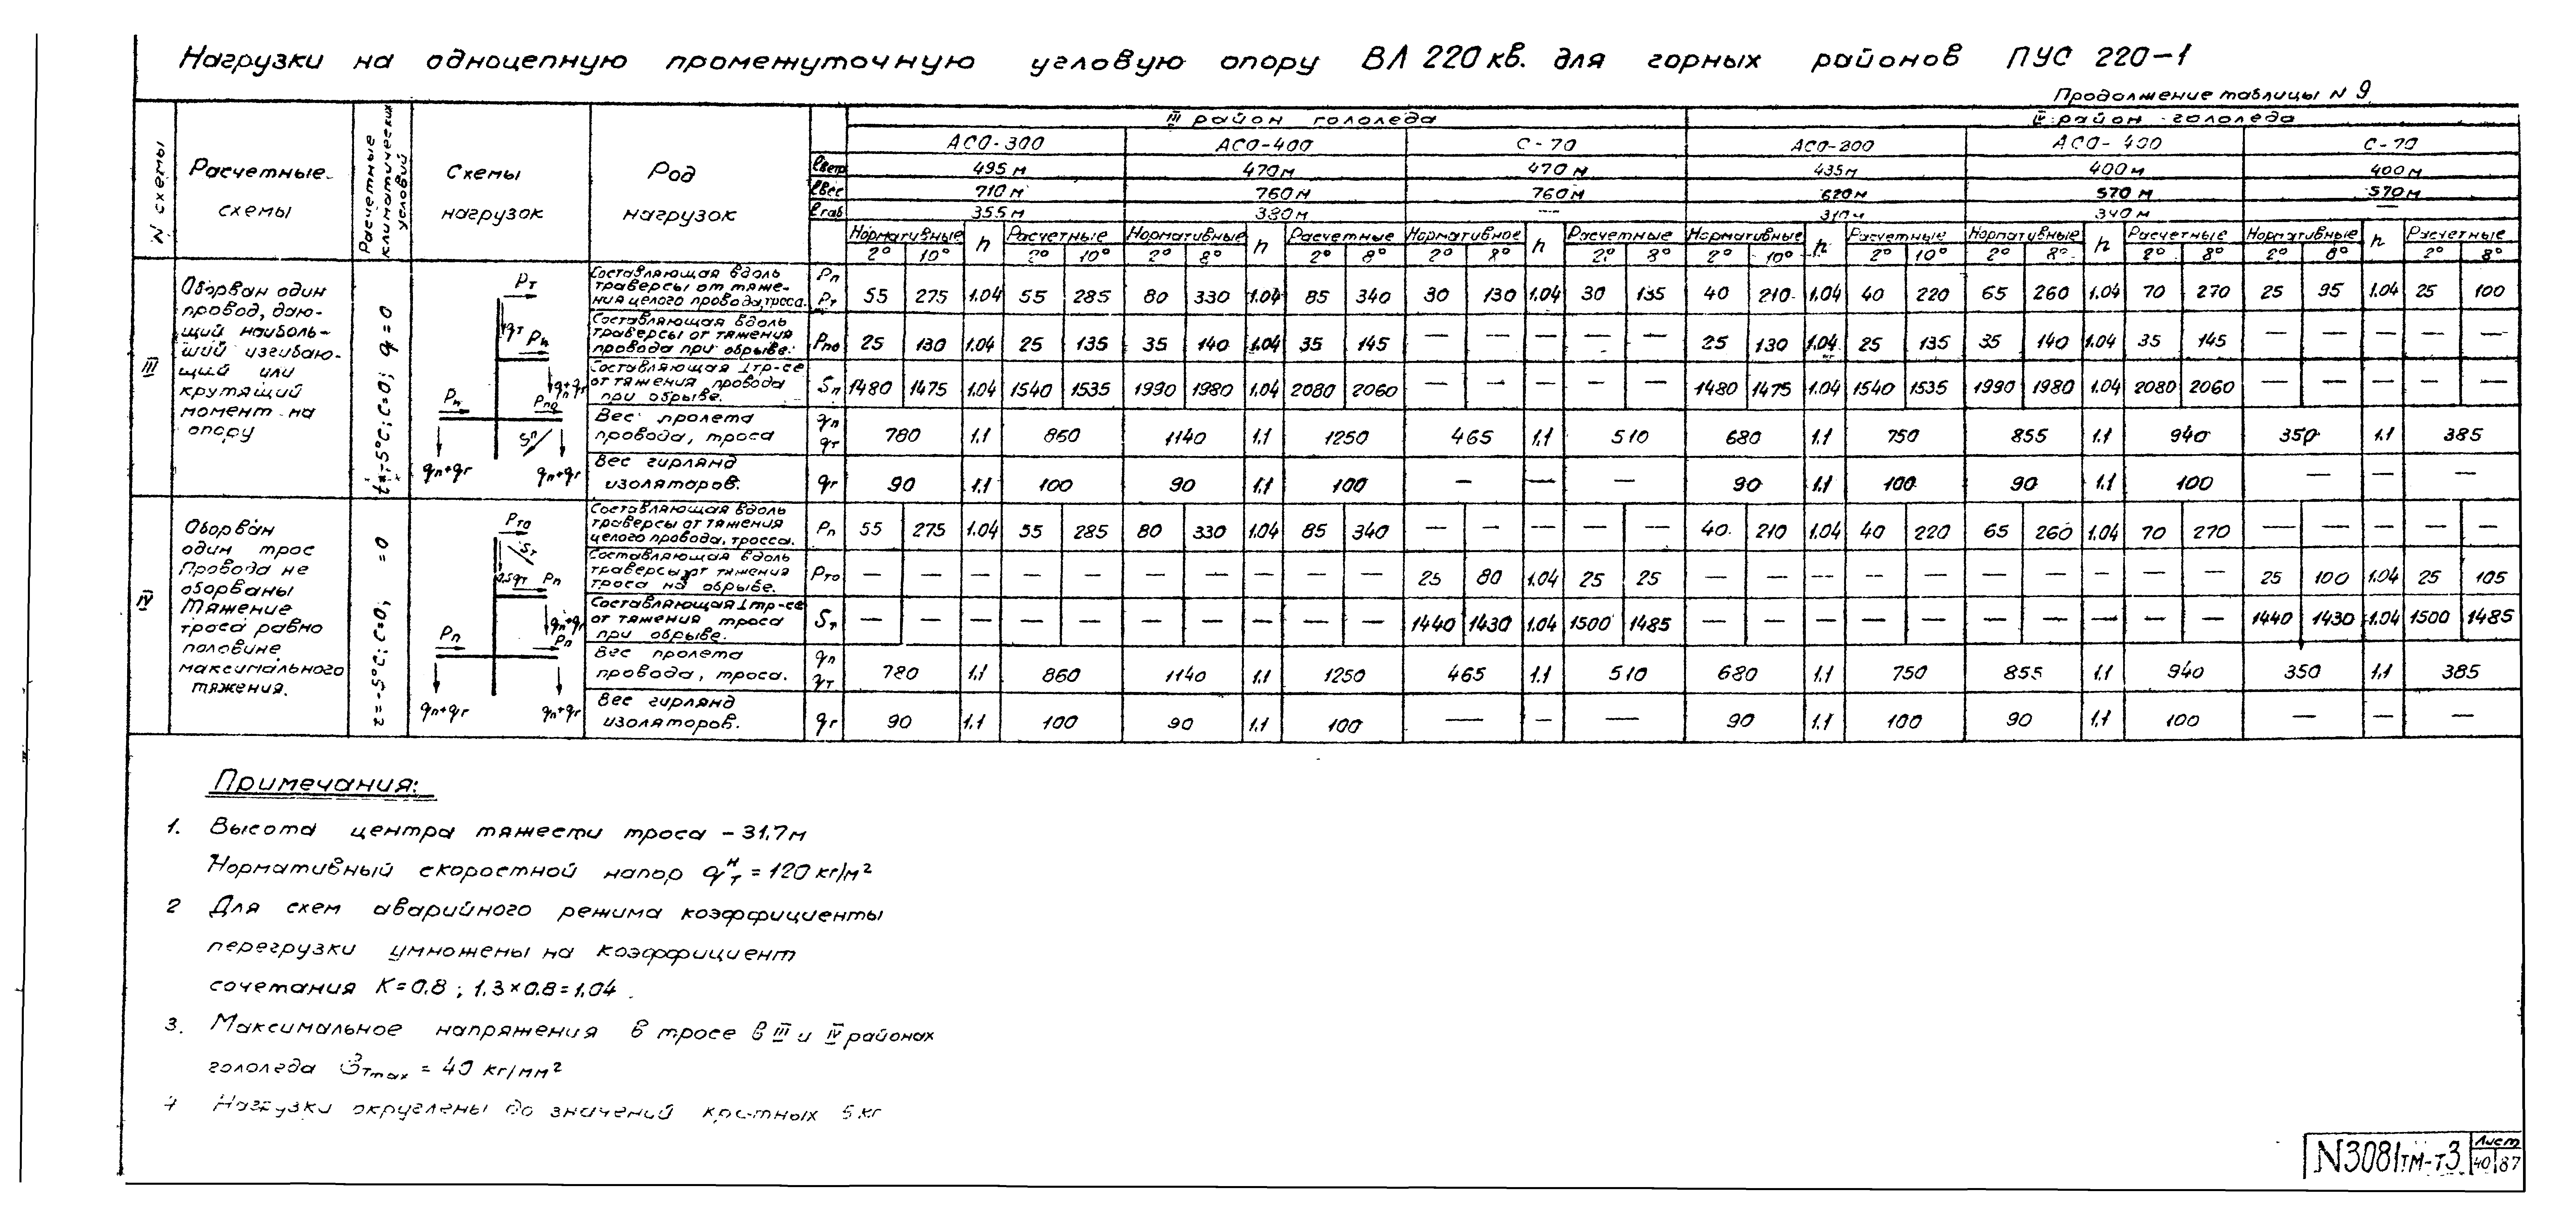 Нагрузки на одноцепную промежуточную угловую опору ВЛ 220 кв. для горных районов ПУС 220-1
Продолжение таблицы N 9
N схемы
Расчетные схемы
Расчетные климатических условий
Схемы нагрузок
Род нагрузок
III район гололеда
IV район гололеда
АСО-300 АСО-400 С-70 АСО-300 АСО-400 С-70
ℓветр 495 м 470 м 470 м 435 м 400 м 400 м
ℓвес 710 м 760 м 760 м 620 м 570 м 570 м
ℓгаб 355 м 380 м — 310 м 340 м —
Нормативные n Расчетные Нормативные n Расчетные Нормативное n Расчетные Нормативные n Расчетные Нормативные n Расчетные Нормативные n Расчетные
2° 10° 2° 10° 2° 8° 2° 8° 2° 8° 2° 8° 2° 10° 2° 10° 2° 8° 2° 8° 2° 8° 2° 8°
III
Оборван один
провод, даю-
щий наиболь-
ший изгибаю-
щий или
крутящий
момент на
опору
t=-5°C; C=0; q=0
Pт
qт Pп
qп+qг
Pп Pпо
Sп
qп+qг qп+qг
Составляющая вдоль
траверсы от тяже-
ния целого провода, троса.
Pп Pт 55 275 1.04 55 285 80 330 1.04 85 340 30 130 1.04 30 135 40 210 1.04 40 220 65 260 1.04 70 270 25 95 1.04 25 100
Составляющая вдоль
траверсы от тяжения
провода при обрыве.
Pпо 25 130 1.04 25 135 35 140 1.04 35 145 — — — — — 25 130 1.04 25 135 35 140 1.04 35 145 — — — — —
Составляющая ⊥ тр-се
от тяжения провода
при обрыве.
Sп 1480 1475 1.04 1540 1535 1990 1980 1.04 2080 2060 — — — — — 1480 1475 1.04 1540 1535 1990 1980 1.04 2080 2060 — — — — —
Вес пролета
провода, троса
qп qт 780 1.1 860 1140 1.1 1250 465 1.1 510 680 1.1 750 855 1.1 940 350 1.1 385
Вес гирлянд
изоляторов.
qг 90 1.1 100 90 1.1 100 — — — 90 1.1 100 90 1.1 100 — — —
IV
Оборван
один трос
Провода не
оборваны
Тяжение
троса равно
половине
максимального
тяжения.
t=-5°C; C=0; =0
Pто
Sт
0.5qт Pп
qп+qг
Pп Pп
qп+qг qп+qг
Составляющая вдоль
траверсы от тяжения
целого провода, тросса.
Pп 55 275 1.04 55 285 80 330 1.04 85 340 — — — — — 40 210 1.04 40 220 65 260 1.04 70 270 — — — — —
Составляющая вдоль
траверсы от тяжения
троса на обрыве.
Pто — — — — — — — — — — 25 80 1.04 25 25 — — — — — — — — — — 25 100 1.04 25 105
Составляющая ⊥ тр-се
от тяжения троса
при обрыве.
Sт — — — — — — — — — — 1440 1430 1.04 1500 1485 — — — — — — — — — — 1440 1430 1.04 1500 1485
Вес пролета
провода, троса.
qп qт 780 1.1 860 1140 1.1 1250 465 1.1 510 680 1.1 750 855 1.1 940 350 1.1 385
Вес гирлянд
изоляторов.
qг 90 1.1 100 90 1.1 100 — — — 90 1.1 100 90 1.1 100 — — —
Примечания:
1. Высота центра тяжести троса – 31.7 м
Нормативный скоростной напор qтᴴ = 120 кг/м²
2 Для схем аварийного режима коэффициенты
перегрузки умножены на коэффициент
сочетания K=0.8; 1.3×0.8=1.04.
3. Максимальное напряжения в тросе в III и IV районах
гололеда σтmax = 40 кг/мм²
4 Нагрузки округлены до значений кратных 5 кг
N3081тм-т3
Лист
40 87